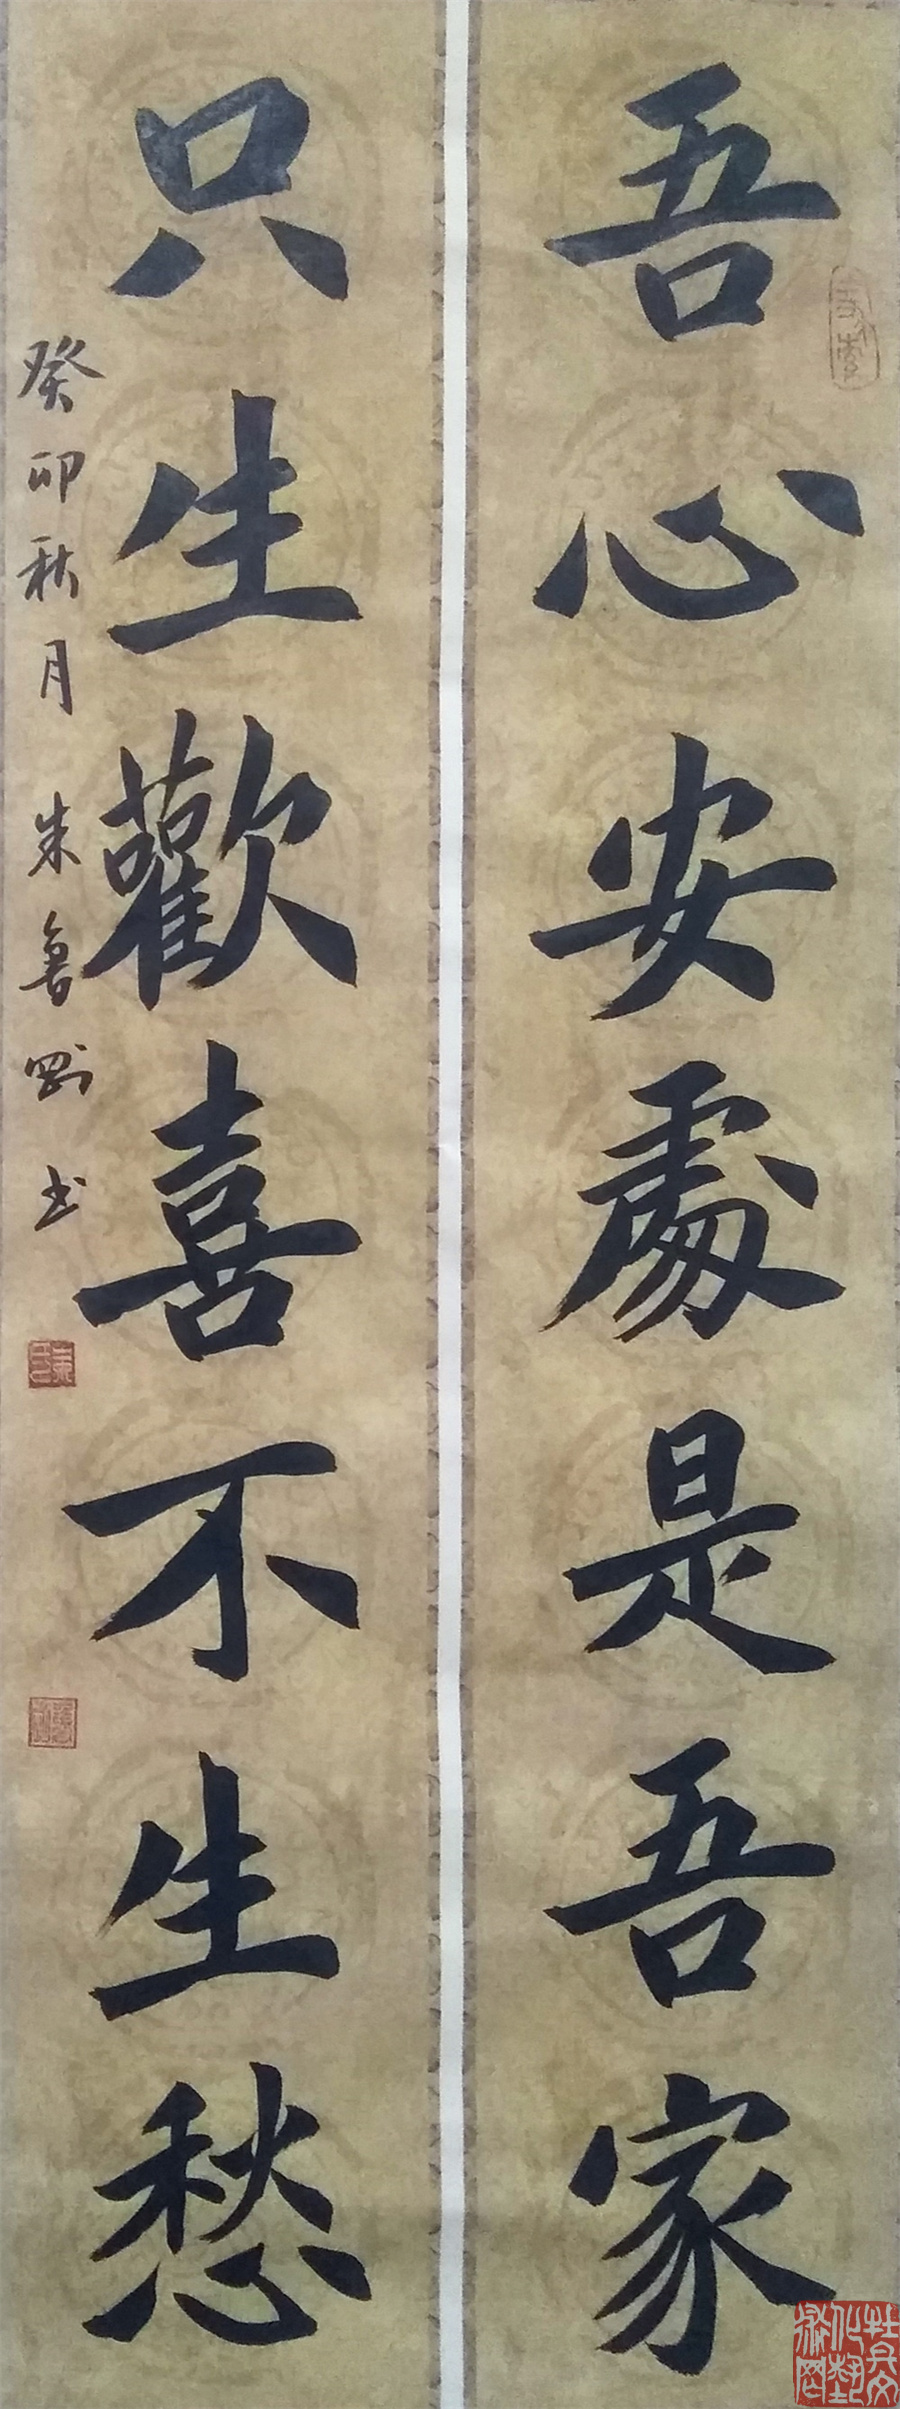 吾心安處是吾家
只生歡喜不生愁
癸卯秋月 朱魯剛书